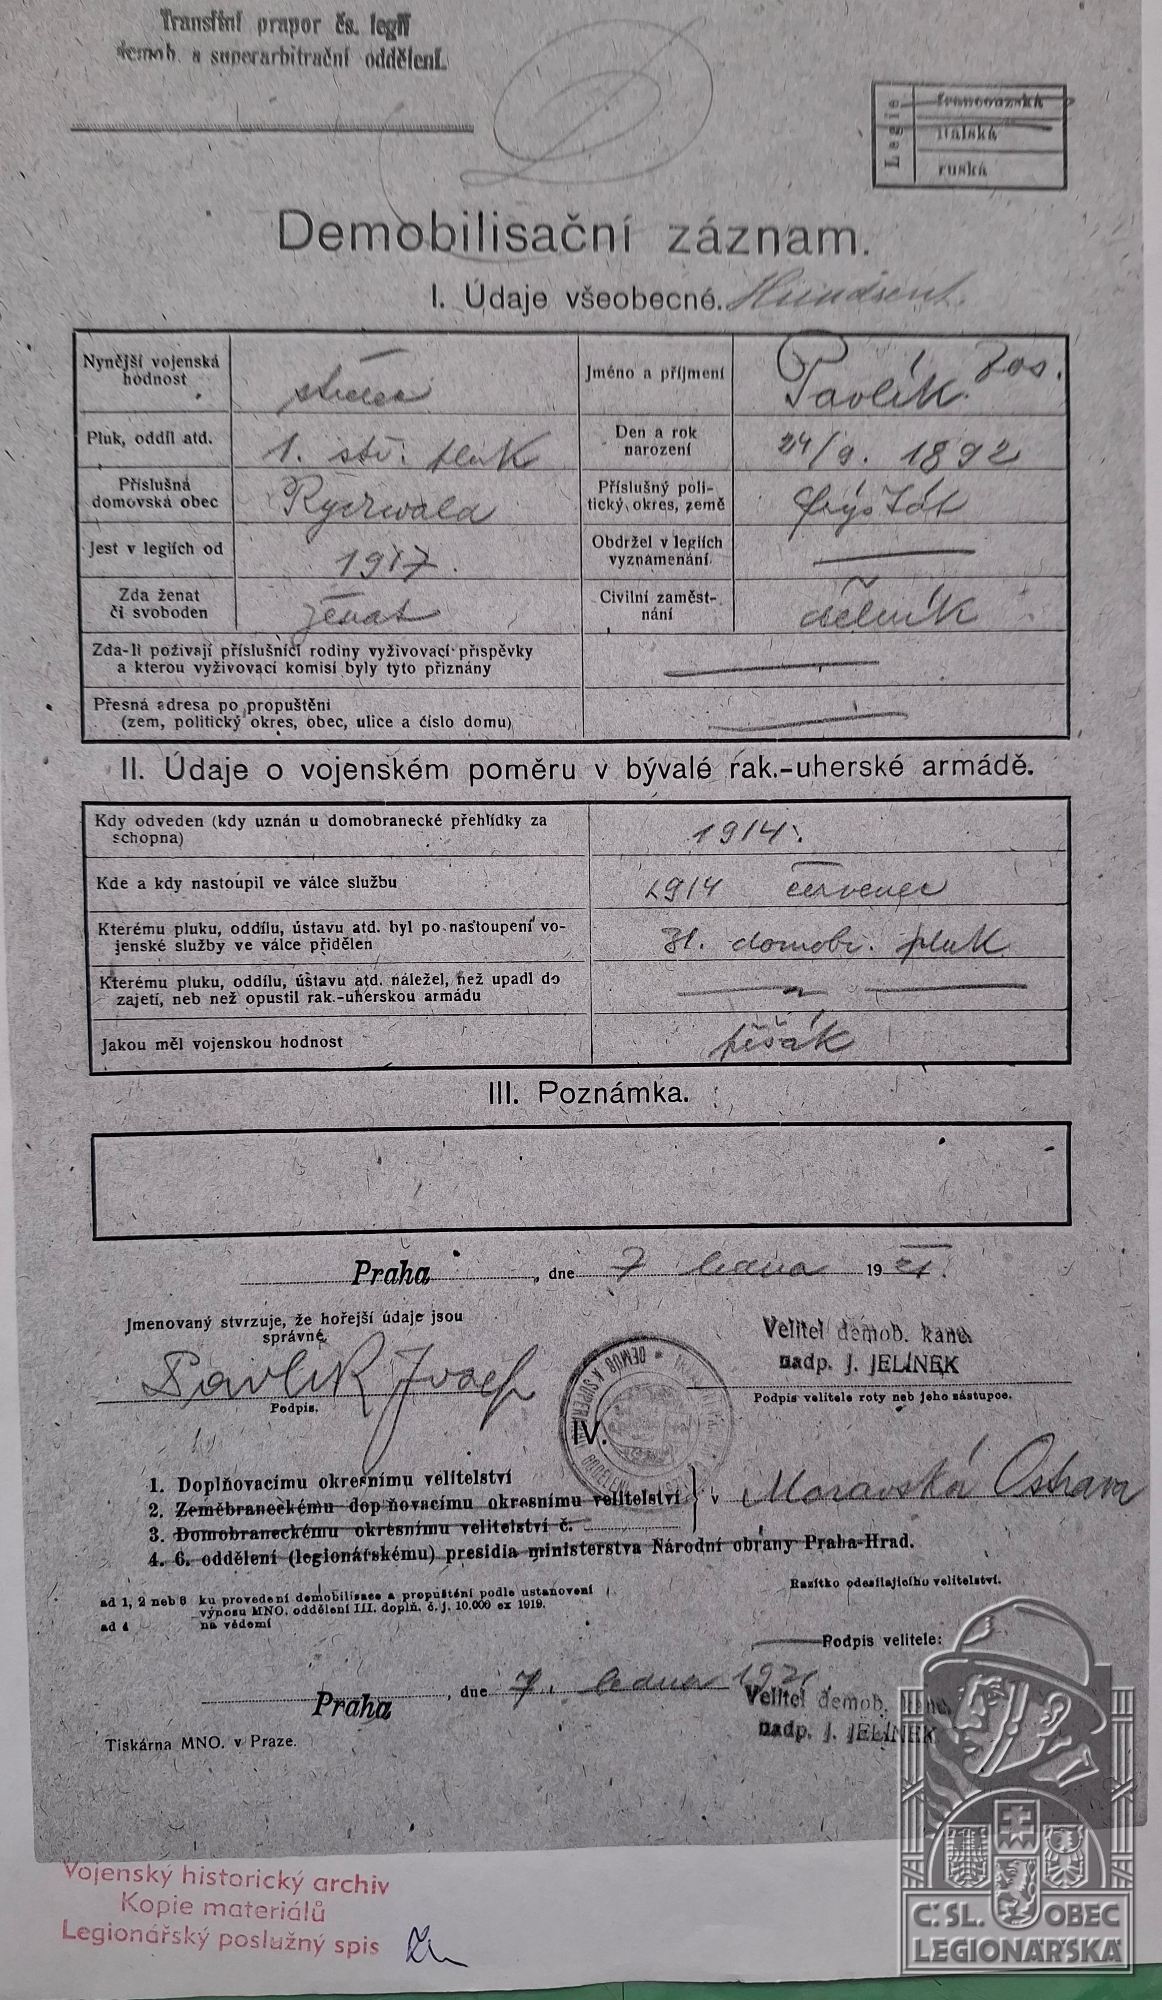 Transitní prapor čs. legií
demob. a superarbitrační oddělení.
D
Legie
francouzská
italská
ruská
Demobilisační záznam.
I. Údaje všeobecné.
Nynější vojenská hodnost
střelec
Jméno a příjmení
Pavlík Jos.
Pluk, oddíl atd.
1. stř. pluk
Den a rok narození
24/9. 1892
Příslušná domovská obec
Rychwald
Příslušný politický okres, země
Fryšták
Jest v legiích od
1917.
Obdržel v legiích vyznamenání
Zda ženat či svoboden
ženat
Civilní zaměstnání
dělník
Zda-li požívají příslušníci rodiny vyživovací příspěvky
a kterou vyživovací komisí byly tyto přiznány
Přesná adresa po propuštění
(zem, politický okres, obec, ulice a číslo domu)
II. Údaje o vojenském poměru v bývalé rak.-uherské armádě.
Kdy odveden (kdy uznán u domobranecké přehlídky za
schopna)
1914.
Kde a kdy nastoupil ve válce službu
1914 červenec
Kterému pluku, oddílu, ústavu atd. byl po nastoupení vo-
jenské služby ve válce přidělen
31. domobr. pluk
Kterému pluku, oddílu, ústavu atd. náležel, než upadl do
zajetí, neb než opustil rak.-uherskou armádu
Jakou měl vojenskou hodnost
pěšák
III. Poznámka.
Praha, dne 7 ledna 1921.
Jmenovaný stvrzuje, že hořejší údaje jsou
správné.
Pavlik Josef
Podpis.
Velitel demob. kanc.
nadp. J. JELÍNEK
Podpis velitele roty neb jeho zástupce.
IV.
1. Doplňovacímu okresnímu velitelství
2. Zeměbraneckému doplňovacímu okresnímu velitelství
3. Domobraneckému okresnímu velitelství č.
v Moravská Ostrava
4. 6. oddělení (legionářskému) presidia ministerstva Národní obrany Praha-Hrad.
ad 1, 2 neb 3 ku provedení demobilisace a propuštění podle ustanovení
výnosu MNO. oddělení III. doplň. č. j. 10.000 ex 1919.
ad 4 na vědomí
Razítko odesílajícího velitelství.
Podpis velitele:
Praha, dne 7. ledna 1921.
Velitel demob. kanc.
nadp. J. JELÍNEK
Tiskárna MNO. v Praze.
Vojenský historický archiv
Kopie materiálů
Legionářský poslužný spis
Č. SL. OBEC
LEGIONÁŘSKÁ